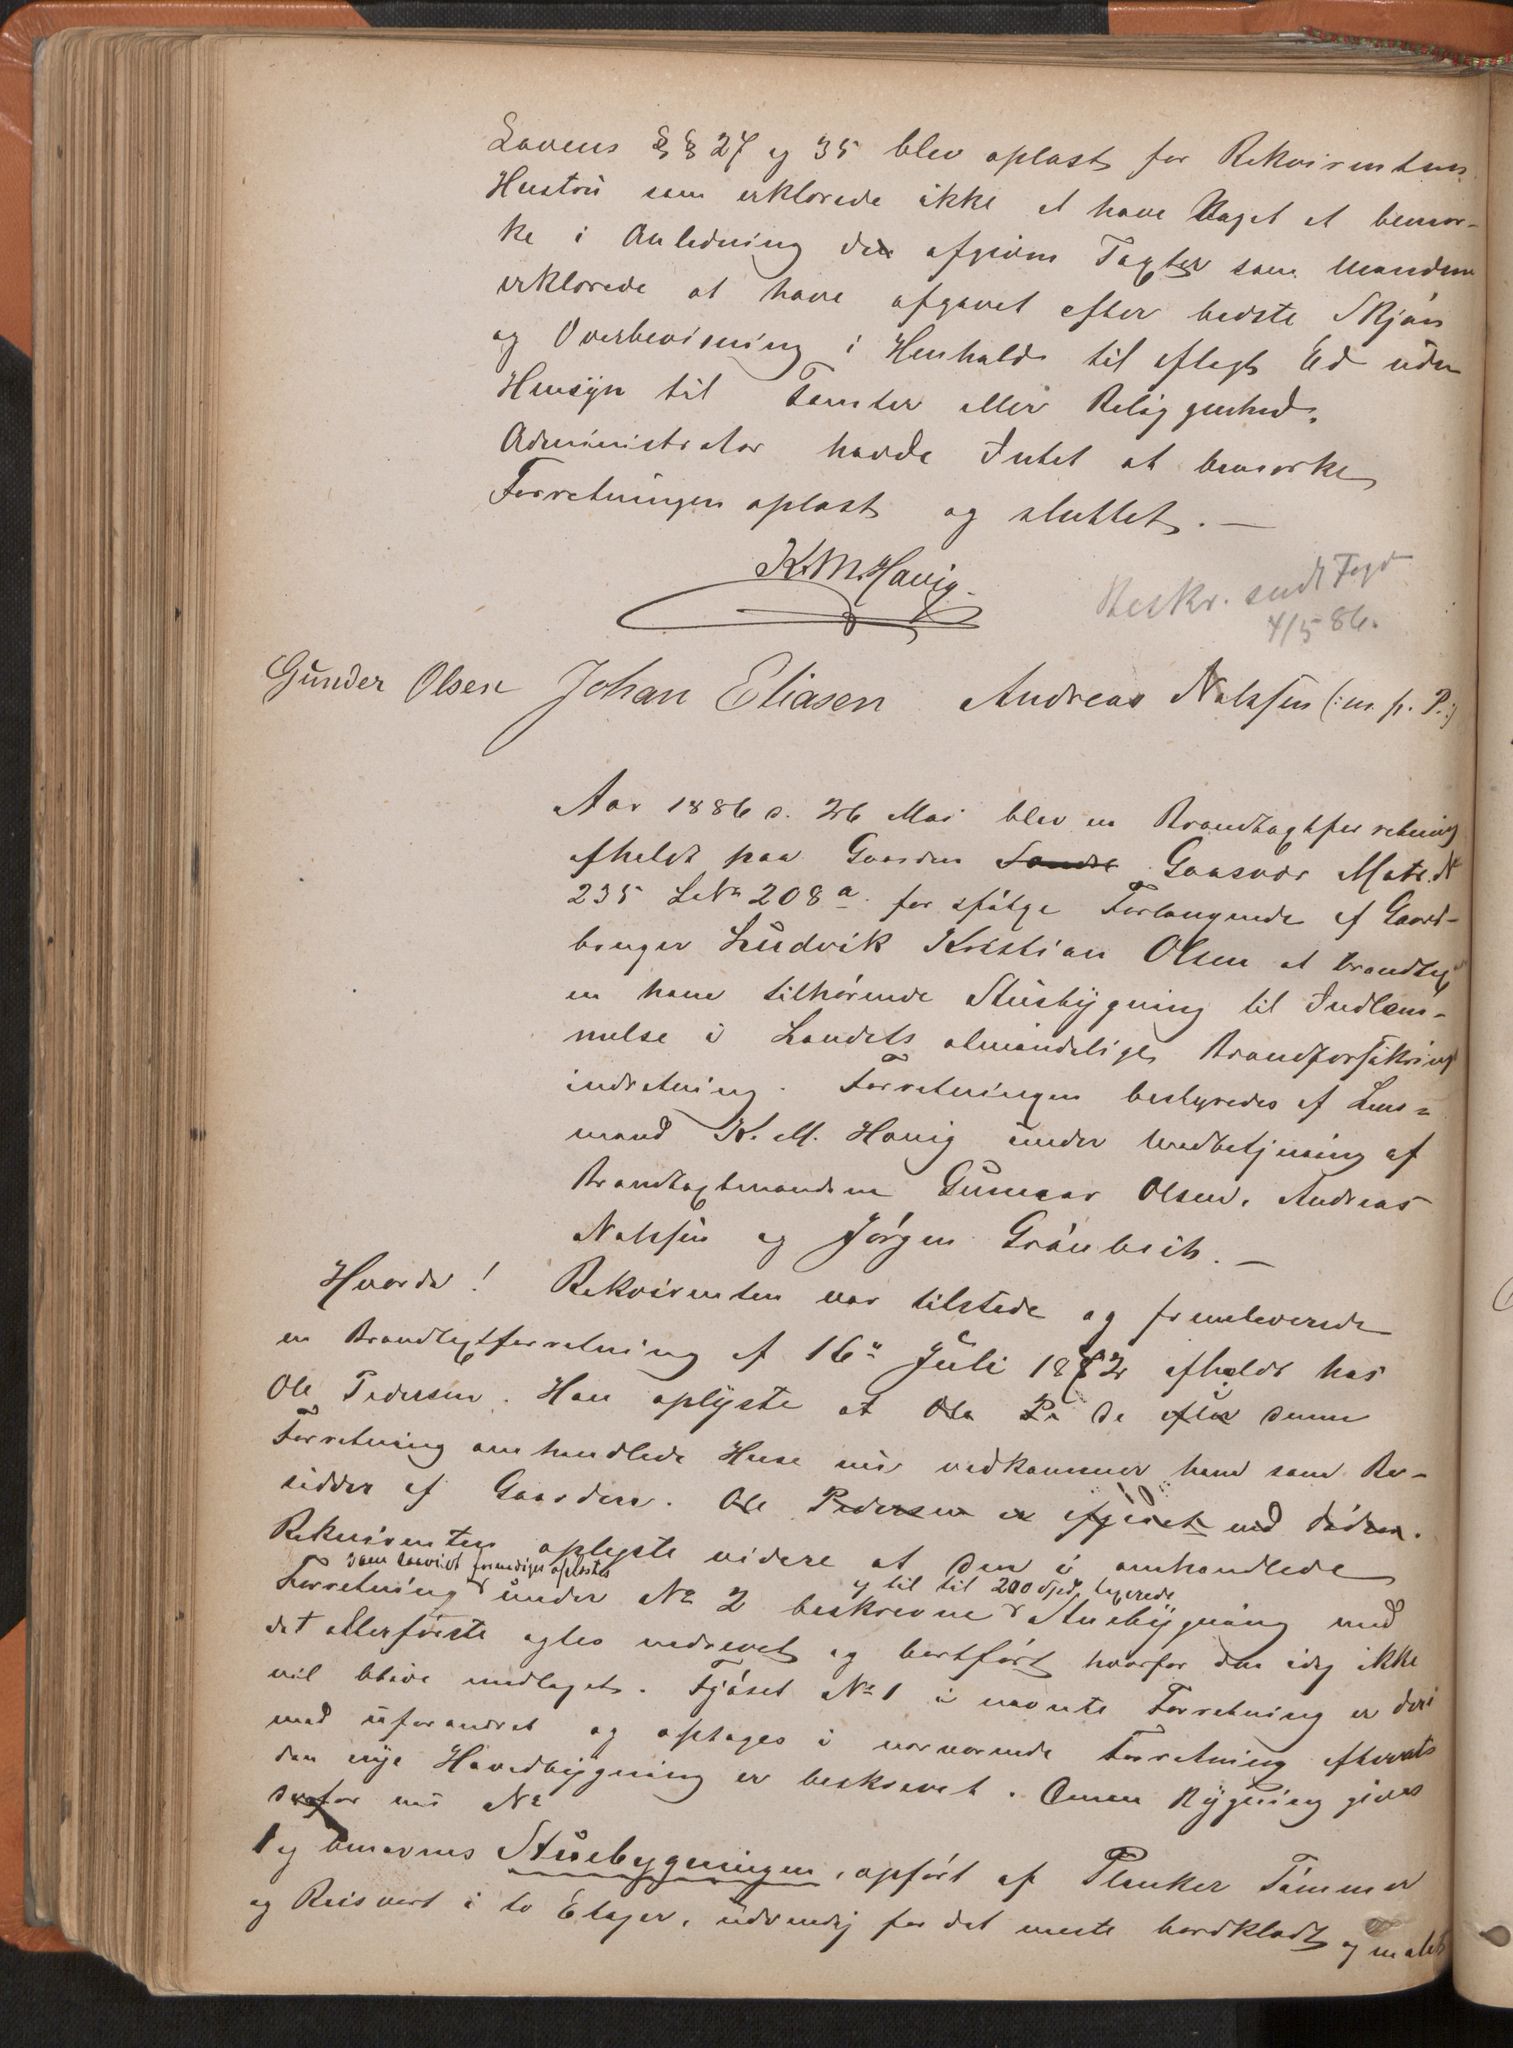 Lovens §§ 27 og 35 blev oplæst for Rekvirentens
Hustru som erklærede ikke at have Noget at bemær-
ke i Anledning den afgivne Taxter som Mændene
erklærede at have afgivet efter bedste Skjøn
og Overbevisning i Henhold til aflagt Ed uden
Hensyn til Tomter eller Beliggenhed.
Administrator havde Intet at bemærke
Forretningen oplæst og sluttet. —
K. M. Havig.
Beskr. sendt Fogd
4/5 86.
Gunder Olsen Johan Eliasen Andreas Nilssen (: m. p. P. :)
Aar 1886 d. 26 Mai blev en Brandtaxtforretning
afholdt paa Gaarden Sandö Gaasvær Matr. N
235 LNo 208a for ifølge Forlangende af Gaard-
bruger Ludvik Kristian Olsen at brandtax
en ham tilhørende Stuebygning til Indlem-
melse i Landets almindelige Brandforsikrings
indretning. Forretningen bestyredes af Lens-
mand K. M. Havig under Medbetjening af
Brandtaxtmændene Gunnar Olsen, Andreas
Nilssen og Jørgen Grønbech. —
Hvorda! Rekvirenten var tilstede og fremleverede
en Brandtaxtforretning af 16de Juli 1872 afholdt hos
Ole Pedersen. Han oplyste at Ole Pe de efter denne
Forretning omhandlede Huse nu vedkommer ham som Be-
sidder af Gaarden. Ole Pedersen er afgaaet ved Døden.
Rekvirenten oplyste videre at den i omhandlede
som saavidt fremdeles oplystes
og til til 200 Spd. taxerede
Forretning under No 2 beskrevne Stuebygning med
det allerførste agtes nedrevet og bortført hvorfor den idag ikke
vil blive medtaget. Fjøset No 1 i nævnte Forretning er deri
mod uforandret og optages i nærværende Forretning efterat
den nye Hovedbygning er beskrevet. Denne Bygning gives
derfor nu No
1 og benævnes Stuebygningen, opført af Planker Tømmer
og Reisvert i to Etager, udvendig for det meste bordklædt og malet